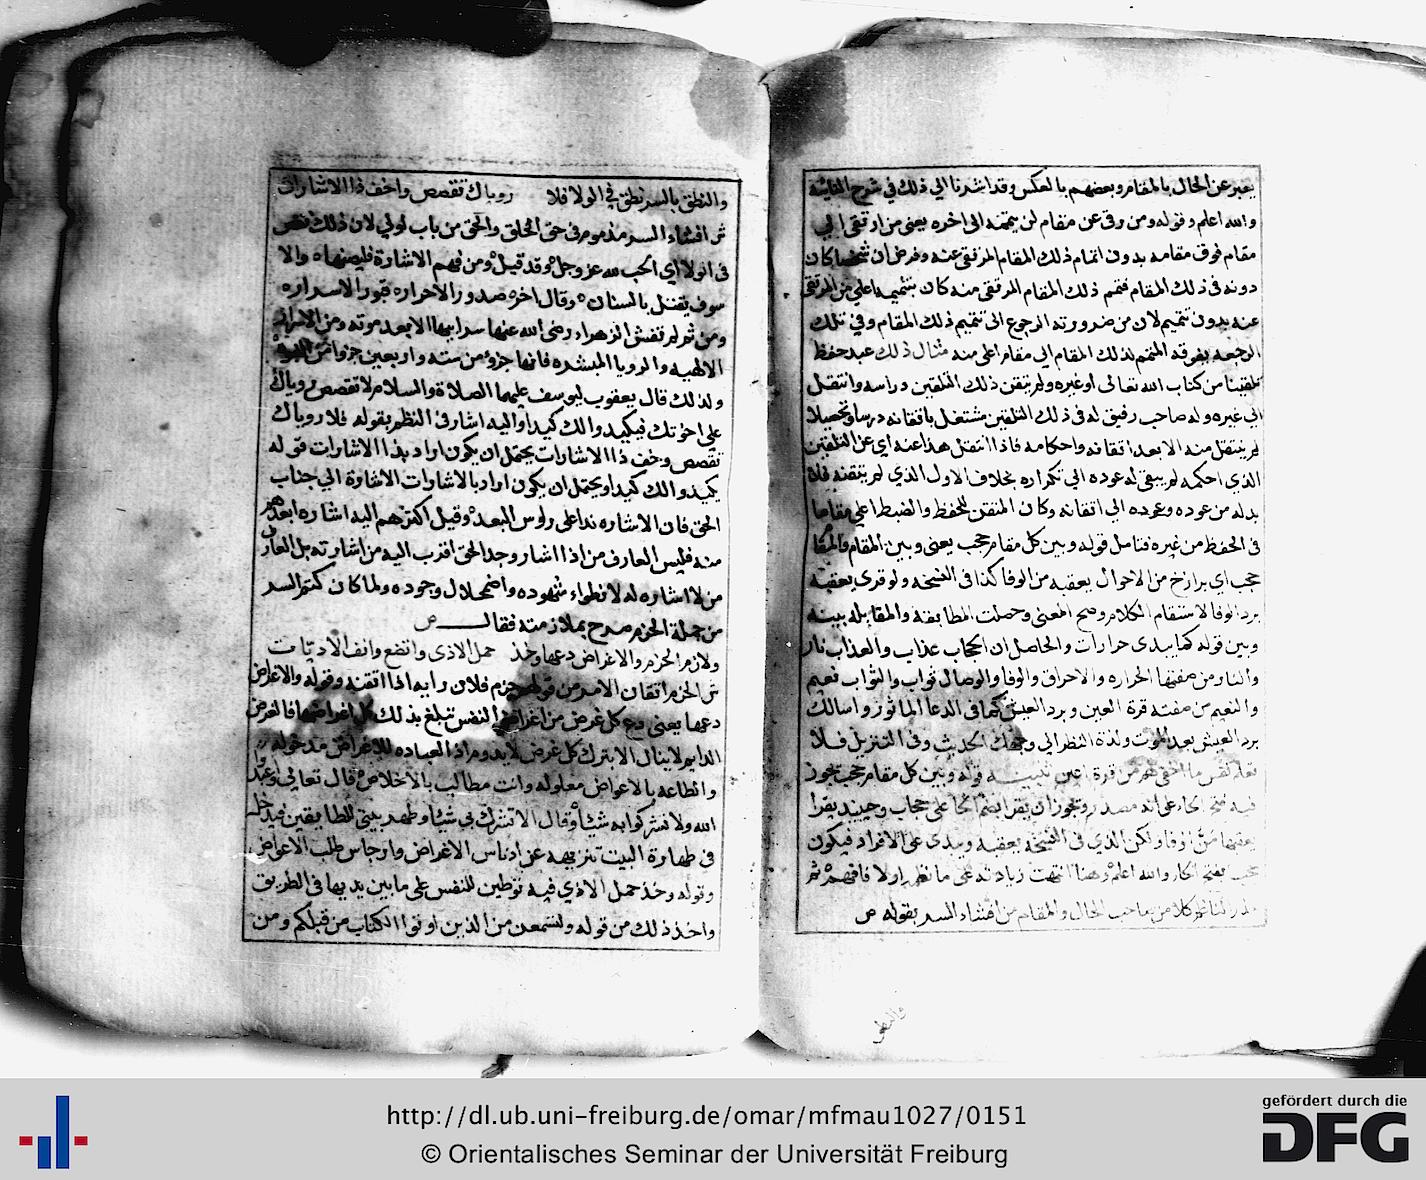 يعبر عن الحال بالمقام وبعضهم بالعكس وقد اشرنا الي ذلك في شرح
والله اعلم وقوله ومن رقى عن مقام لن يتمه الى اخره يعني من ارتقى الي
مقام فوق مقامه بدون اتمام ذلك المقام المرتقى عنه وفرض ان شخصا كان
دونه في ذلك المقام فتمم ذلك المقام المرتقى منه كان بتتميمه اعلي من المرتقى
عنه بدون تتميم لان من ضرورته الرجوع الى تتميم ذلك المقام وفي تلك
الرجعه يفوقه المتمم لذلك المقام الي مقام اعلى منه مثال ذلك عبد حفظ
تلقينا من كتاب الله تعالى او غيره ولم يتقن ذلك التلقين دراسه وانتقل
الى غيره وله صاحب رفيق له في ذلك التلقين مشتغل باتقانه درسا وتحصيلا
لم ينتقل منه الا بعد اتقانه واحكامه فاذا انتقل هذا عنه اي عن التلقين
الذي احكمه لم يبق له عوده الي تكراره بخلاف الاول الذي لم يتقنه فلا
بد له من عوده وعوده الي اتقانه وكان المتقن للحفظ والضبط اعلي مقاما
في الحفظ من غيره فتامل قوله وبين كل مقام حجب يعني وبين المقام والمقا
حجب اي برازخ من الاحوال يعقبه من الوفا كذا في النسخه ولو قرى يعقبه
برد الوفا لاستقام الكلام وصح المعنى وحصلت المطابقه والمقابله بينه
وبين قوله كما يبدى حرارات والحاصل ان الحجاب عذاب والعذاب نار
والنار من صفتها الحراره والاحراق والوفا والوصال ثواب والثواب نعيم
والنعيم من صفته قرة العين وبرد العيش كما في الدعا الماثور واسالك
برد العيش بعد الموت ولذة النظر الي وجهك الحديث وفي التنزيل فلا
تعلم نفس ما اخفي لهم من قرة اعين تنبيه قوله وبين كل مقام حجب يجوز
فيه فتح الحاء على انه مصدر ويجوز ان يقرا بضم الحا على حجاب وحينيذ يقرا
ولكن الذي في النسخه يعقبه ويبدى على الافراد فيكون
والله اعلم وهنا انتهت زيادته على ما تقدم اولا فافهم ثم
الناظم كلا من صاحب الحال والمقام من افشاء السر بقوله ص
والنطق
والنطق بالسر نطق في الولا فلا روياك تقصص واخف ذا الاشارات
ش افشاء السر مذموم في حق الخلق والحق من باب اولي لان ذلك نقص
في الولا اي الحب لله عز وجل وقد قيل ومن فهم الاشارة فليصنها والا
سوف يقتل بالسنان وقال اخر صدور الاحرار قبور الاسرار
ومن ثم لم تفش الزهراء رضي الله عنها سر ابيها الا بعد موته ومن الاسرار
الالهيه والرويا المبشره فانها جزؤ من سته واربعين جزوا من النبوة
ولذلك قال يعقوب ليوسف عليهما الصلاة والسلام لا تقصص روياك
علي اخوتك فيكيدوا لك كيدا واليه اشار في النظم بقوله فلا روياك
تقصص وخف ذا الاشارات يحتمل ان يكون اراد بذا الاشارات قوله
يكيدوا لك كيدا ويحتمل ان يكون اراد بالاشارات الاشارة الي جناب
الحق فان الاشاره ندا على رءوس البعد وقيل اكثرهم اليه اشاره ابعدهم
منه فليس العارف من اذا اشار وجد الحق اقرب اليه من اشارته بل العارف
من لا اشاره له لانطواء شهوده واضمحلال وجوده ولما كان كتم السر
من جملة الحزم مدح بملازمته فقال ص
ولازم الحزم والاغراض دعها وخذ حمل الاذى واتضع وانف الاذيات
ش الحزم اتقان الامر من قولهم حزم فلان رايه اذا اتقنه وقوله والاغراض
دعها يعني دع كل غرض من اغراض النفس تبلغ بذلك كل اغراضها فالغرض
الدايم لا ينال الا بترك كل غرض لا يدوم اذ العباده للاغراض مدخوله
والطاعه بالاعواض معلوله وانت مطالب بالاخلاص قال تعالي واعبدوا
الله ولا تشركوا به شيئا وقال ان لا تشرك بي شيئا وطهر بيتي للطايفين فيدخل
في طهارة البيت تنزيهه عن ادناس الاغراض وارجاس طلب الاعواض
وقوله وخذ حمل الاذي فيه توطين للنفس على ما بين يديها في الطريق
واخذ ذلك من قوله ولتسمعن من الذين اوتوا الكتاب من قبلكم ومن
http://dl.ub.uni-freiburg.de/omar/mfmau1027/0151
© Orientalisches Seminar der Universität Freiburg
gefördert durch die
DFG